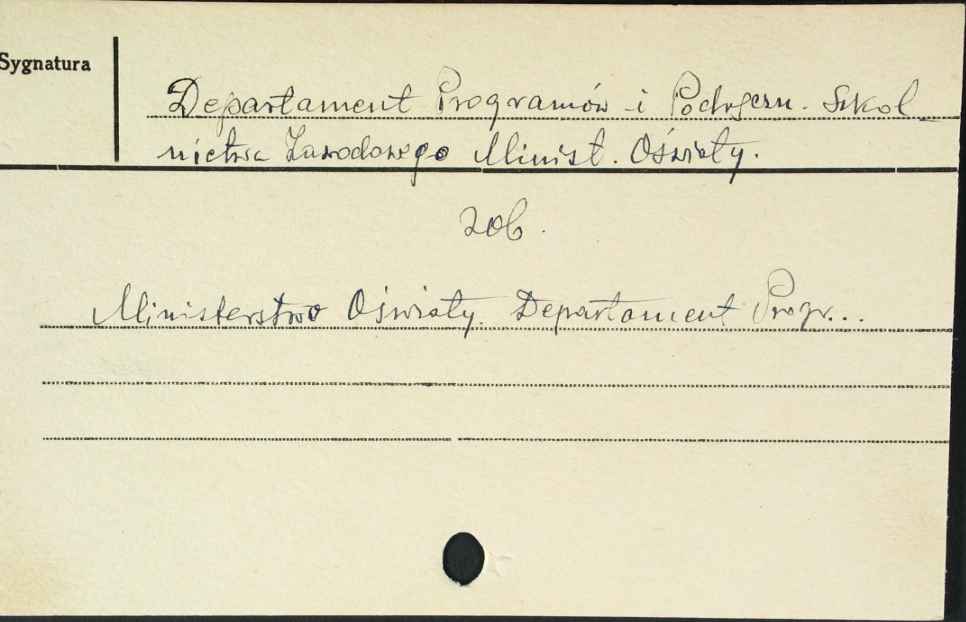 Sygnatura
Departament Programów i Podręczn. Szkol-
nictwa Zawodowego Minist. Oświaty.
zob.
Ministerstwo Oświaty. Departament Progr...